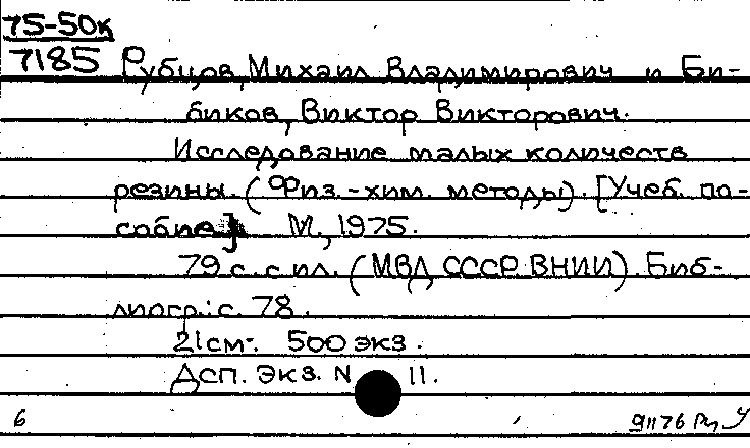 75-50к
7185 Рубцов, Михаил Владимирович и Би-
биков, Виктор Викторович.
Исследование малых количеств
резины. (Физ.-хим. методы). [Учеб. по-
собие] М., 1975.
79 с. с ил. (МВД СССР. ВНИИ). Биб-
лиогр.: с. 78.
21 см. 500 экз.
Дсп. Экз. N 11.
6 91176